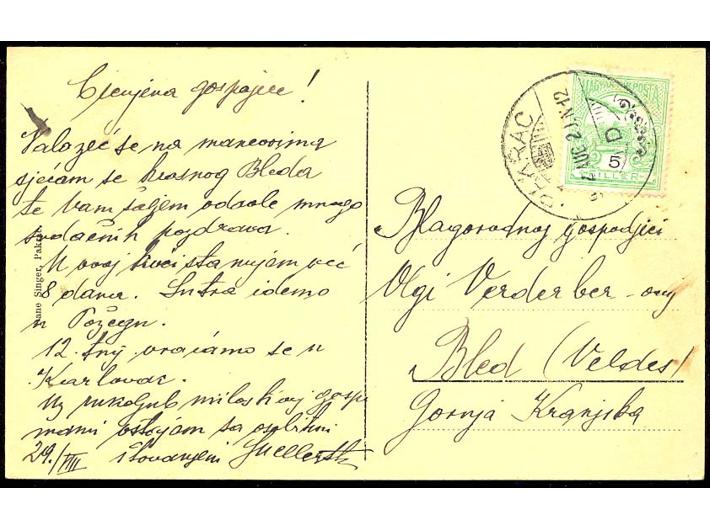 Cijenjena gospojice!
Nalazeć se na manevrima
sjećam se krasnog Bleda
te Vam šaljem odavle mnogo
srdačnih pozdrava.
U ovoj kući stanujem već
8 dana. Sutra idemo
u Požegu.
12. vraćamo se u
Karlovac.
Uz rukoljub milostivoj gospe
mami ostajem sa osobitim
29./VIII štovanjem
Singer, Pakrac
PAKRAC
AUG 29
MAGYAR KIR. POSTA
5
FILLER
Blagorodnoj gospodjici
Olgi Verderber-ovoj
Bled (Veldes)
Gornja Kranjska